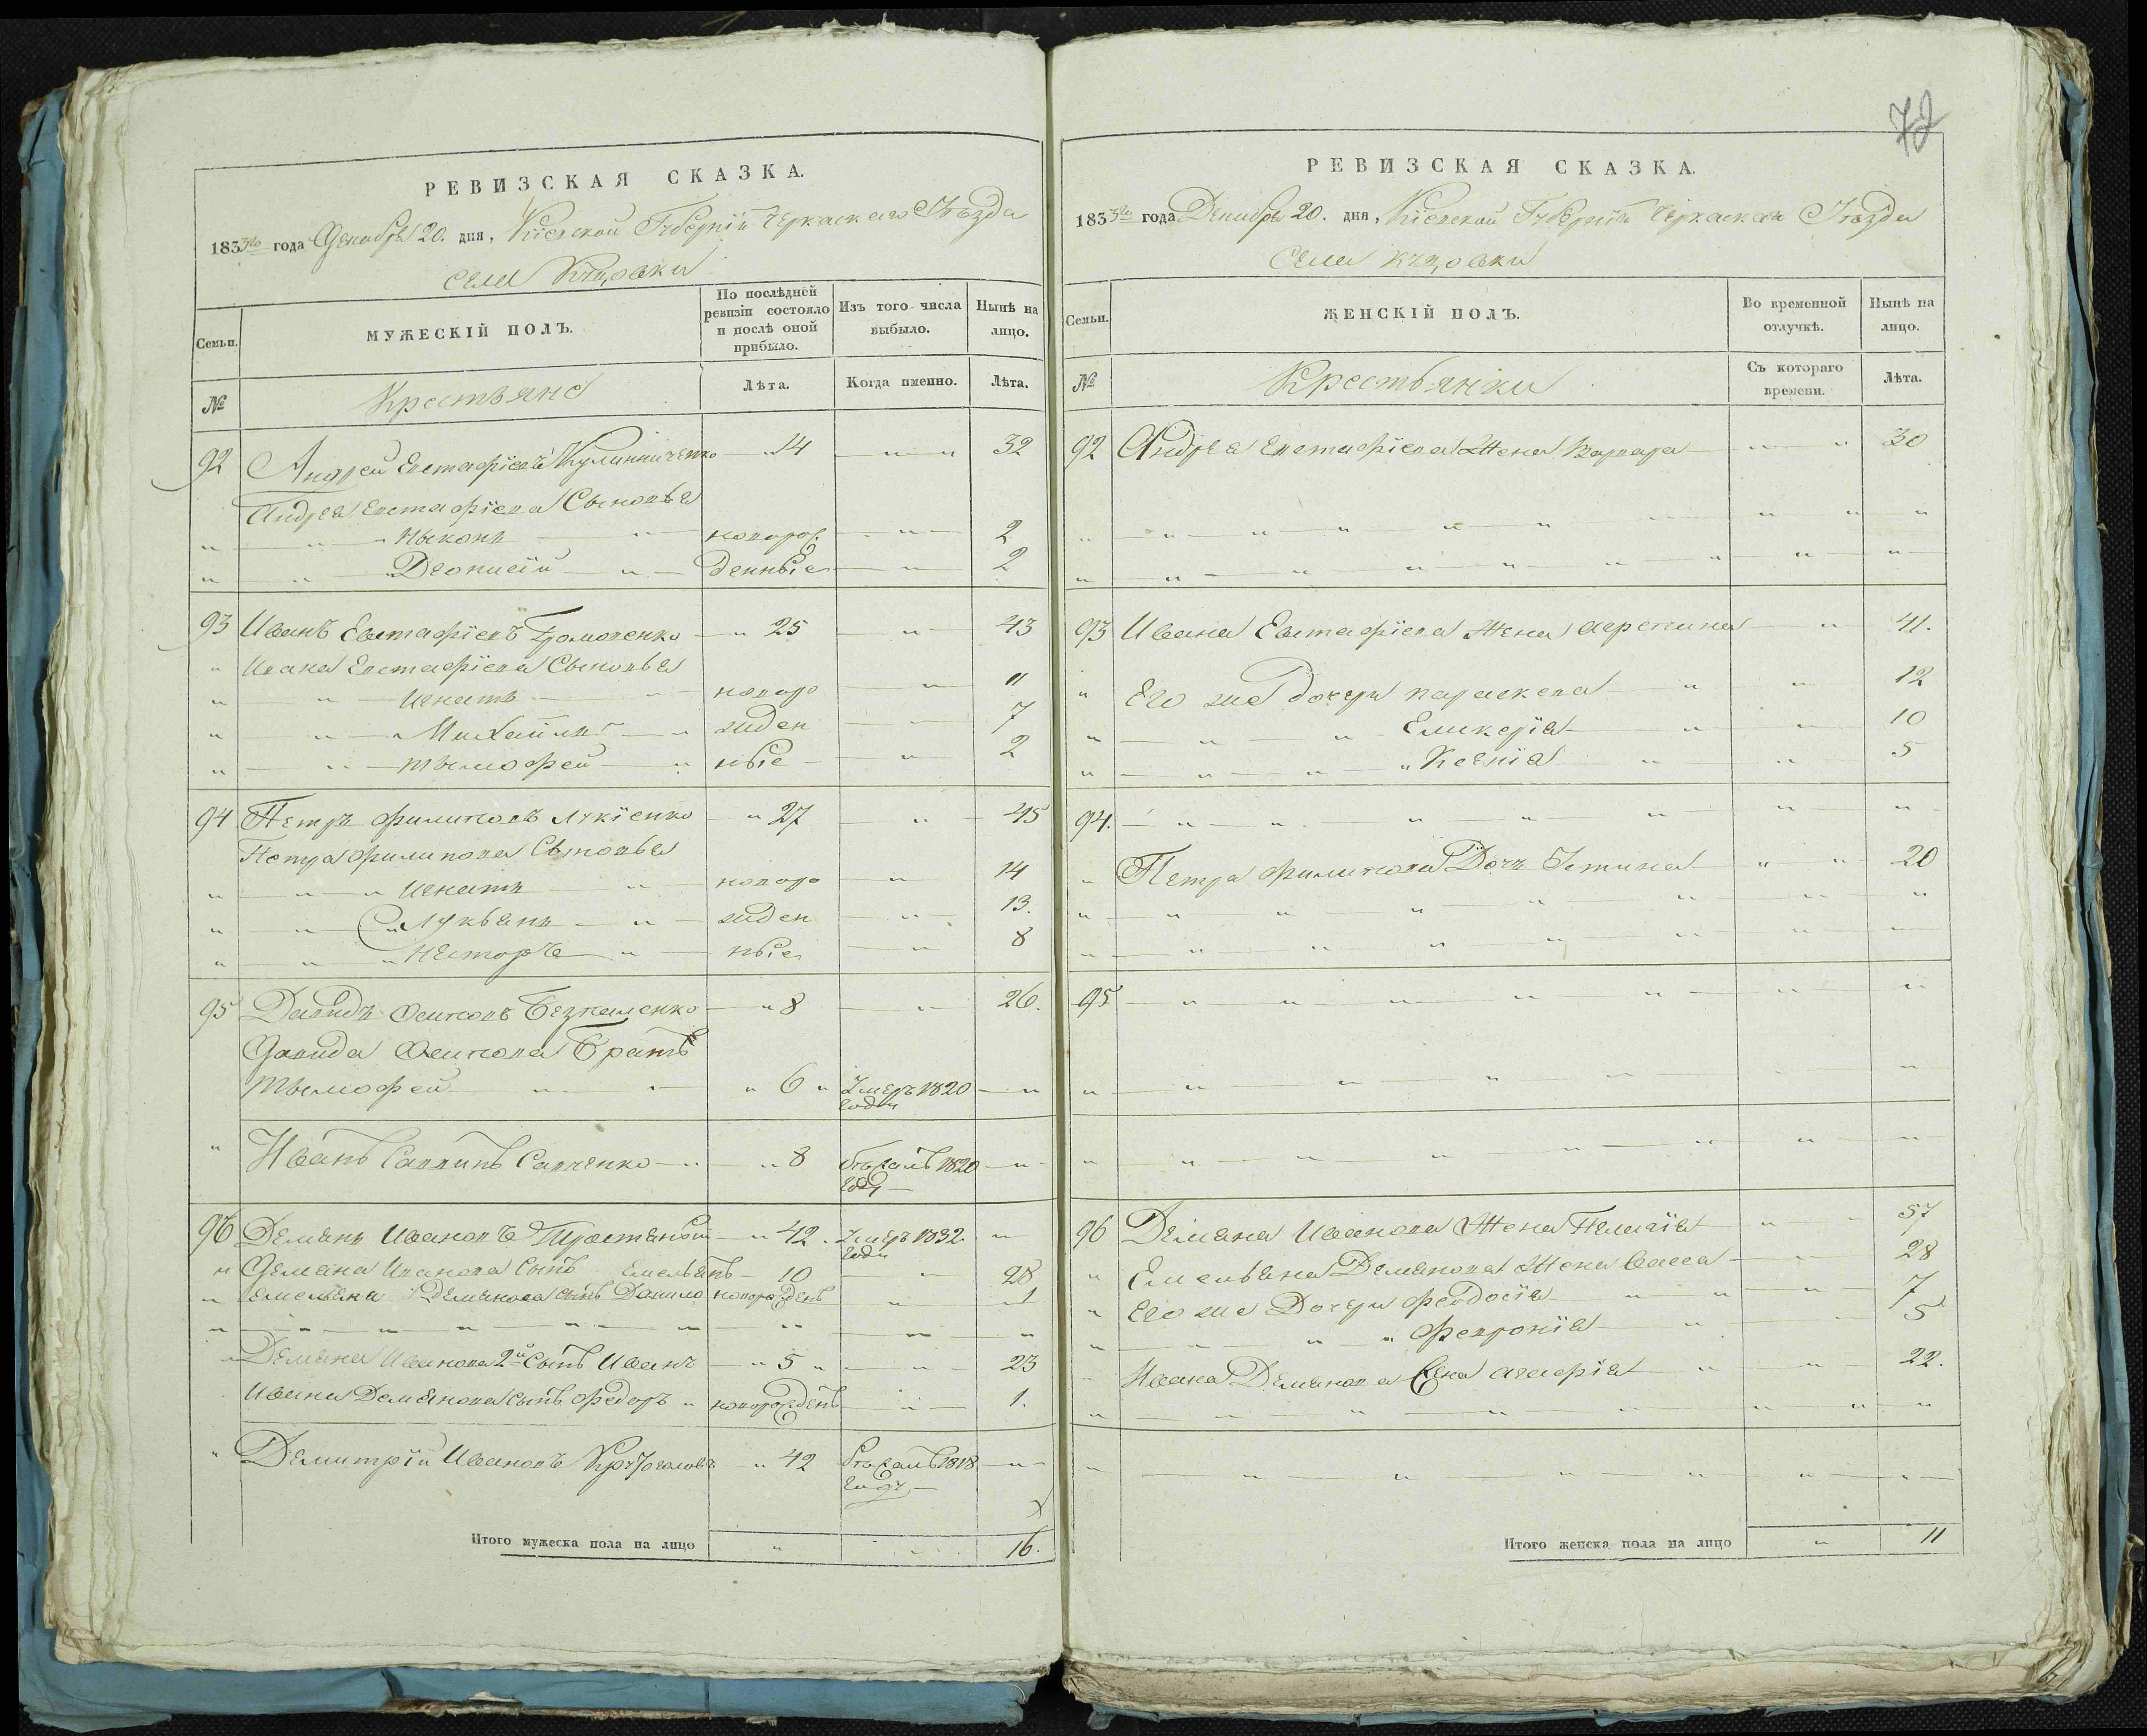 РЕВИЗСКАЯ СКАЗКА.
1833го года Декабря 20. дня, Кіевской Губерніи Черкаскаго Уѣзда
села Куцовки
Семьи.
МУЖЕСКІЙ ПОЛЪ.
По послѣдней ревизіи состояло и послѣ оной прибыло.
Изъ того числа выбыло.
Нынѣ на лицо.
№
Крестьяне
Лѣта.
Когда именно.
Лѣта.
92 Андрей Евстафіевъ Кулинниченко " 14 " " 32
Андрея Евстафіева Сыновья
" " Никонъ " новорож " 2
" " Деонисій " денные " 2
93 Иванъ Евстафіевъ " 25 " 43
" Ивана Евстафіева Сыновья
" " Игнатъ " новоро 11
" " Михайлъ " жден " 7
" " тымофей " ные " 2
94 Петръ филиповъ Лукіенко " 27 " 45
Петра филипова Сыновья
" " Игнатъ " новоро " 14
" " Лукьянъ " жден " 13.
" " Несторъ " ные " 8
95 Давидъ Осиповъ " 8 " 26.
Давида Осипова Братъ
тымофей " " " 6 " Умеръ 1820 "
года
" Иванъ Саввинъ Савченко " " 8 бѣжалъ 1820 "
году
96 Демянъ Ивановъ " 42. Умеръ 1832. "
года
" Демяна Иванова Сынъ Емельянъ 10 " 28
" Емельяна Демянова сынъ Данило новорожденъ " 1
" " " " " " " " "
" Демяна Иванова 2й Сынъ Иванъ " 5 " " 23
Ивана Демянова сынъ федоръ " новорожденъ " 1.
" Демитрій Ивановъ " 42 бѣжалъ 1818 "
году
Итого мужеска пола на лицо " " 16.
72
РЕВИЗСКАЯ СКАЗКА.
1833го года Декабря 20. дня, Кіевской Губерніи Черкаскаго Уѣзда
Села Куцовки
Семьи.
ЖЕНСКІЙ ПОЛЪ.
Во временной отлучкѣ.
Нынѣ на лицо.
№
Крестьянки
Съ котораго времени.
Лѣта.
92 Андрея Евстафіева Жена Варвара " " 30
" " " " " " " " "
" " " " " " " " "
93 Ивана Евстафіева Жена агрепина " 41.
" Его же Дочери параскева " " 12
" " " Гликерія " " 10
" " " Ксенія " " 5
94. " " " " " " "
" Петра филипова Дочь Устина " " 20
" " " " " " " "
" " " " " " " "
95 " " " " " " " "
" " " " " " "
" " " " " " " "
96 Демяна Иванова Жена Пелагія " " 57
" Емельяна Демянова Жена Васса " 28
" Его же Дочери феодосія " " " 7
" " " февронія " " 5
" Ивана Демянова Жена агафія " " 22.
" " " " " " " " "
" " " " " " " "
Итого женска пола на лицо " 11